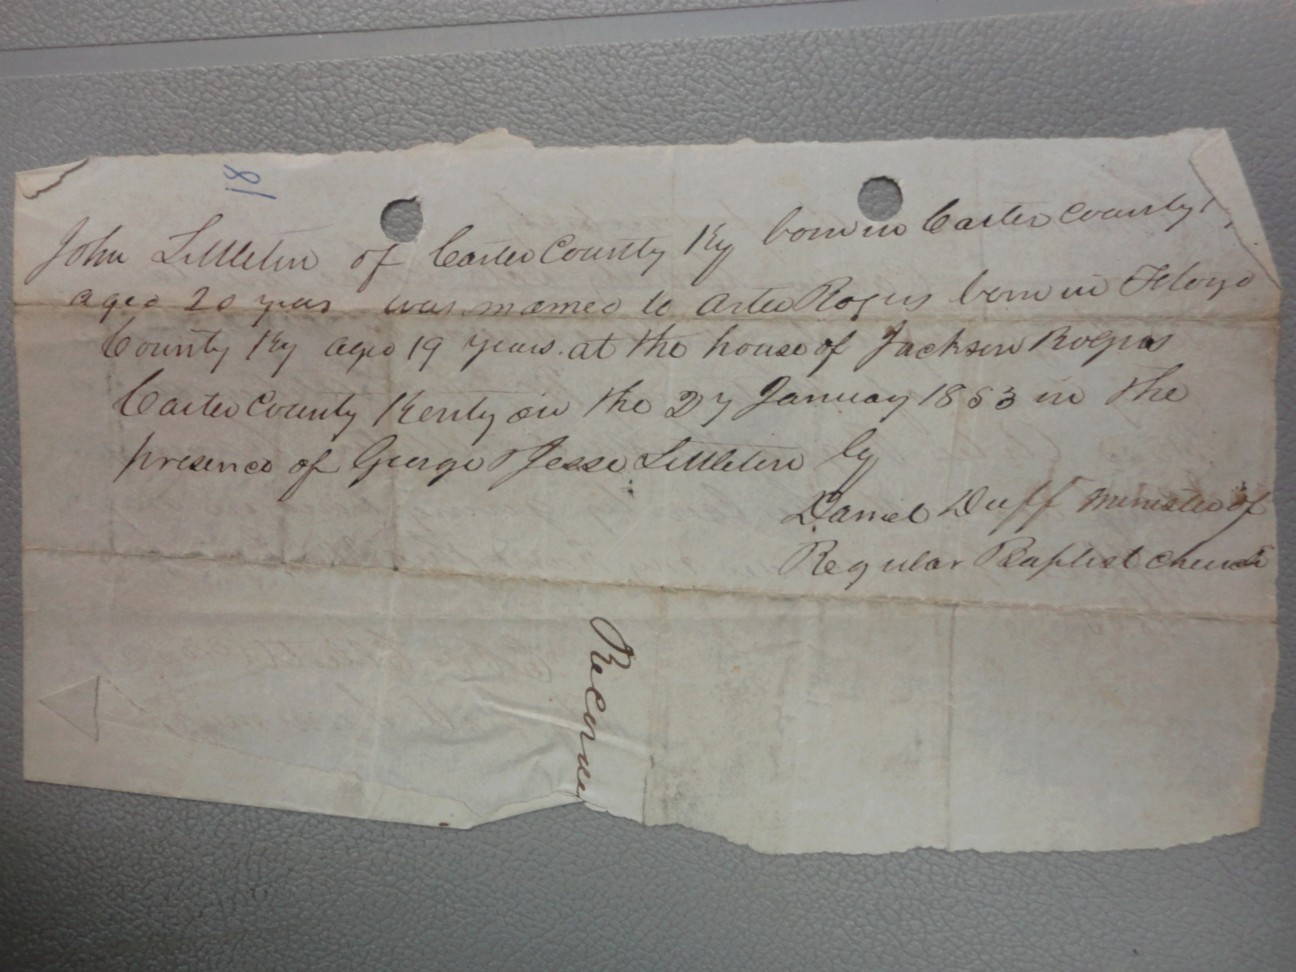 18
John Littleton of Carter County Ky born in Carter County
aged 20 years was married to Arter Rogers born in Floyd
County Ky aged 19 years. at the house of Jackson Rogers
Carter County Kenty on the 27 January 1853 in the
presence of George & Jesse Littleton by
Daniel Duff Minister of
Regular Baptist Church